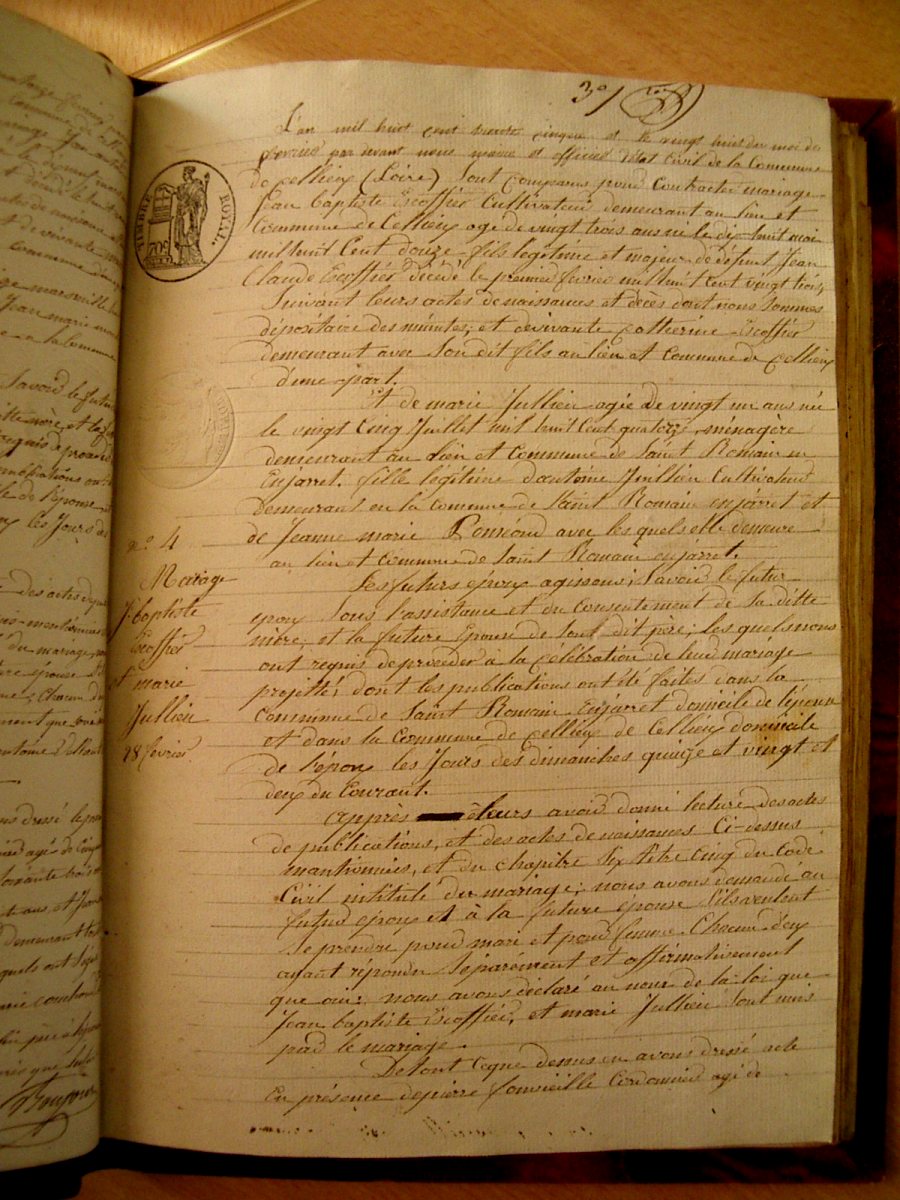 3e/
TIMBRE ROYAL
70c
L'an mil huit cent trente cinque et le vingt huit du moi de
fevrier par devant nous maire et officier d'état Civil de la Commune
de cellieu (Loire) Sont comparus pour Contracter mariage
Jean baptiste Escoffier Cultivateur demeurant au lieu et
Commune de Cellieu age de vingt trois ans né le dix huit mai
mil huit Cent douze fils legitime et majeur de défunt Jean
Claude Escoffier décédé le premier fevrier mil huit cent vingt
Suivant leurs actes de naissances et décès dont nous Sommes
dépositaire des minutes, et de vivante Catherine Escoffier
demeurant avec Son dit fils au lieu et Commune de Cellieu
d'une part.
Et de marie Jullien agée de vingt un ans née
le vingt Cinq Juillet mil huit Cent quatorze, ménagère
demeurant au lieu et Commune de Saint Romain en
Enjarret. fille legitime d'antoine Jullien Cultivateur
demeurant en la Commune de Saint Romain enjarret et
de Jeanne marie avec les quels elle demeure
au lieu et commune de Saint Romain enjarret.
Les futurs epoux agissons; Savoir le futur
epoux Sous l'assistance et du Consentement de Sa ditte
mère, et la future Epouse de Sont dit père; les quels nous
ont requis de procéder à la célébration de leur mariage
projetté; dont les publications ont été faites dans la
Commune de Saint Romain Enjarret domicile de l'épouse
et dans la Commune de Cellieu de Cellieu domicile
de l'époux les Jours des dimanches quinze et vingt et
deux du Courant.
Apprès leurs avoir donné lecture des actes
de publications, et des actes de naissances Ci-dessus
manthionnés, et du chapitre Six titre Cinq du Code
Civil intitulé du mariage; nous avons demandé au
futur epoux et à la future epouse S'ils veulent
Se prendre pour mari et pour femme. Chacun d'eux
ayant répondu Séparément et affirmativement
que oui; nous avons déclaré au nom de la loi que
Jean baptiste Escoffier, et marie Jullien Sont unis
par le mariage.
De tout Ceque dessus en avons dressé acte
En présence de pierre fonvieille Cordonnier agé de
n.o 4
Mariage
J. baptiste
Escoffier
et marie
Jullien
28 fevrier